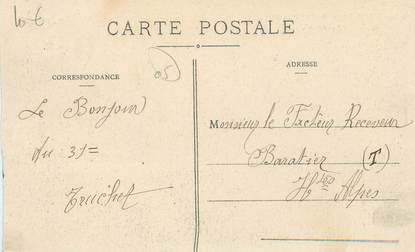 10 €
CARTE POSTALE
05
CORRESPONDANCE
Le Bonjour
du 31=
Truchet
ADRESSE
Monsieur le Facteur Receveur
Baratier (T)
Htes Alpes